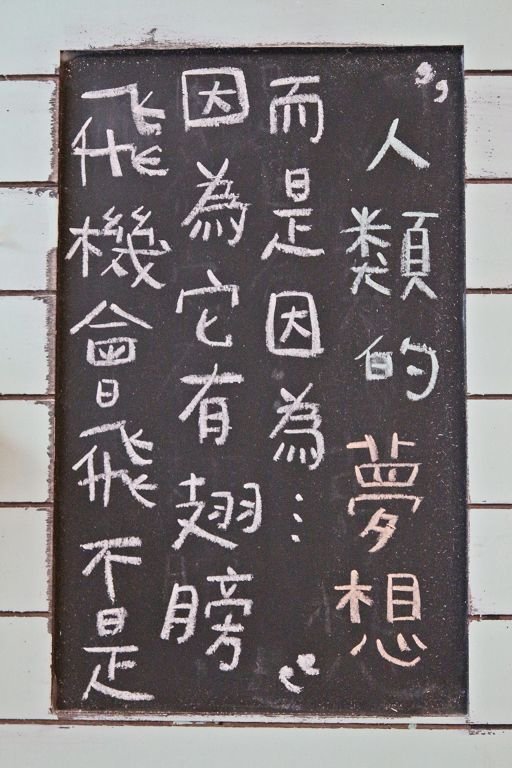 飛機會飛不是
因為它有翅膀
而是因為...“
”人類的夢想